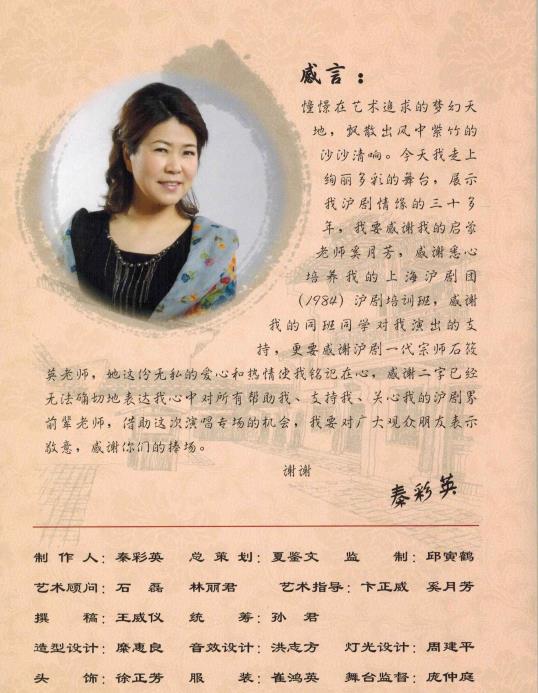 感言：
憧憬在艺术追求的梦幻天
地，飘散出风中紫竹的
沙沙清响。今天我走上
绚丽多彩的舞台，展示
我沪剧情缘的三十多
年，我要感谢我的启蒙
老师奚月芳，感谢悉心
培养我的上海沪剧团
(1984）沪剧培训班，感谢
我的同班同学对我演出的支
持，更要感谢沪剧一代宗师石筱
英老师，她这份无私的爱心和热情使我铭记在心，感谢二字已经
无法确切地表达我心中对所有帮助我、支持我、关心我的沪剧界
前辈老师，借助这次演唱专场的机会，我要对广大观众朋友表示
敬意，感谢你们的捧场。
谢谢
秦彩英
制作人：秦彩英 总策划：夏鉴文 监制：邱寅鹤
艺术顾问：石磊 林丽君 艺术指导：卞正威 奚月芳
撰稿：王威仪 统筹：孙君
造型设计：糜惠良 音效设计：洪志方 灯光设计：周建平
头饰：徐正芳 服装：崔鸿英 舞台监督：庞仲庭